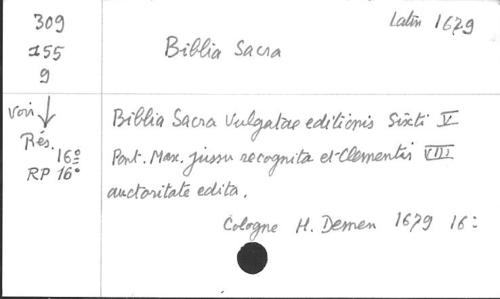 309
155
9
voir
Rés.
16º
RP 16º
Latin 1679
Biblia Sacra
Biblia Sacra Vulgatae editionis Sixti V
Pont. Max. jussu recognita et Clementis VIII
auctoritate edita.
Cologne H. Demen 1679 16º